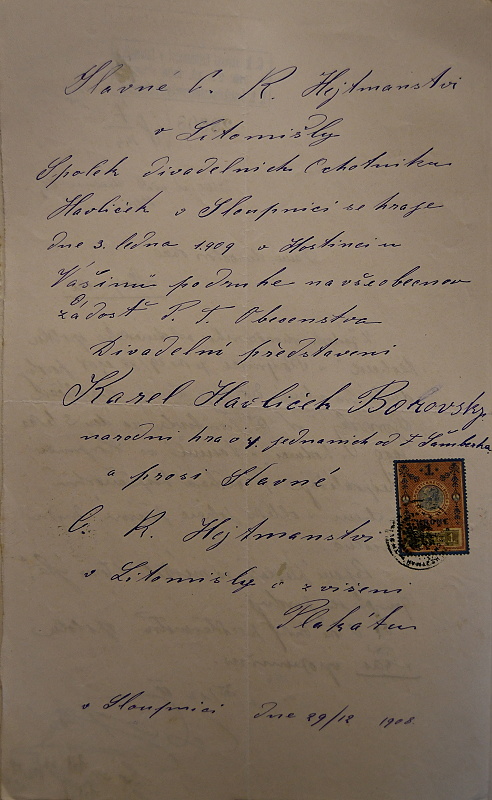 Slavné C. K. Hejtmanstvi
v Litomišly
Spolek divadelních Ochotniku
Havlíček v Sloupnici se hraje
dne 3. ledna 1909 v Hostinci u
Vášinů podruhe na všeobecnou
žádosť P. T. Obecenstva
Divadelní představeni
Karel Havlíček Borovský
narodni hra o 4 jednanich od F. Šamberka
a prosi Slavné
C. K. Hejtmanstvi
v Litomišly o zvišeni
Plakátu
v Sloupnici dne 29/12 1908
1